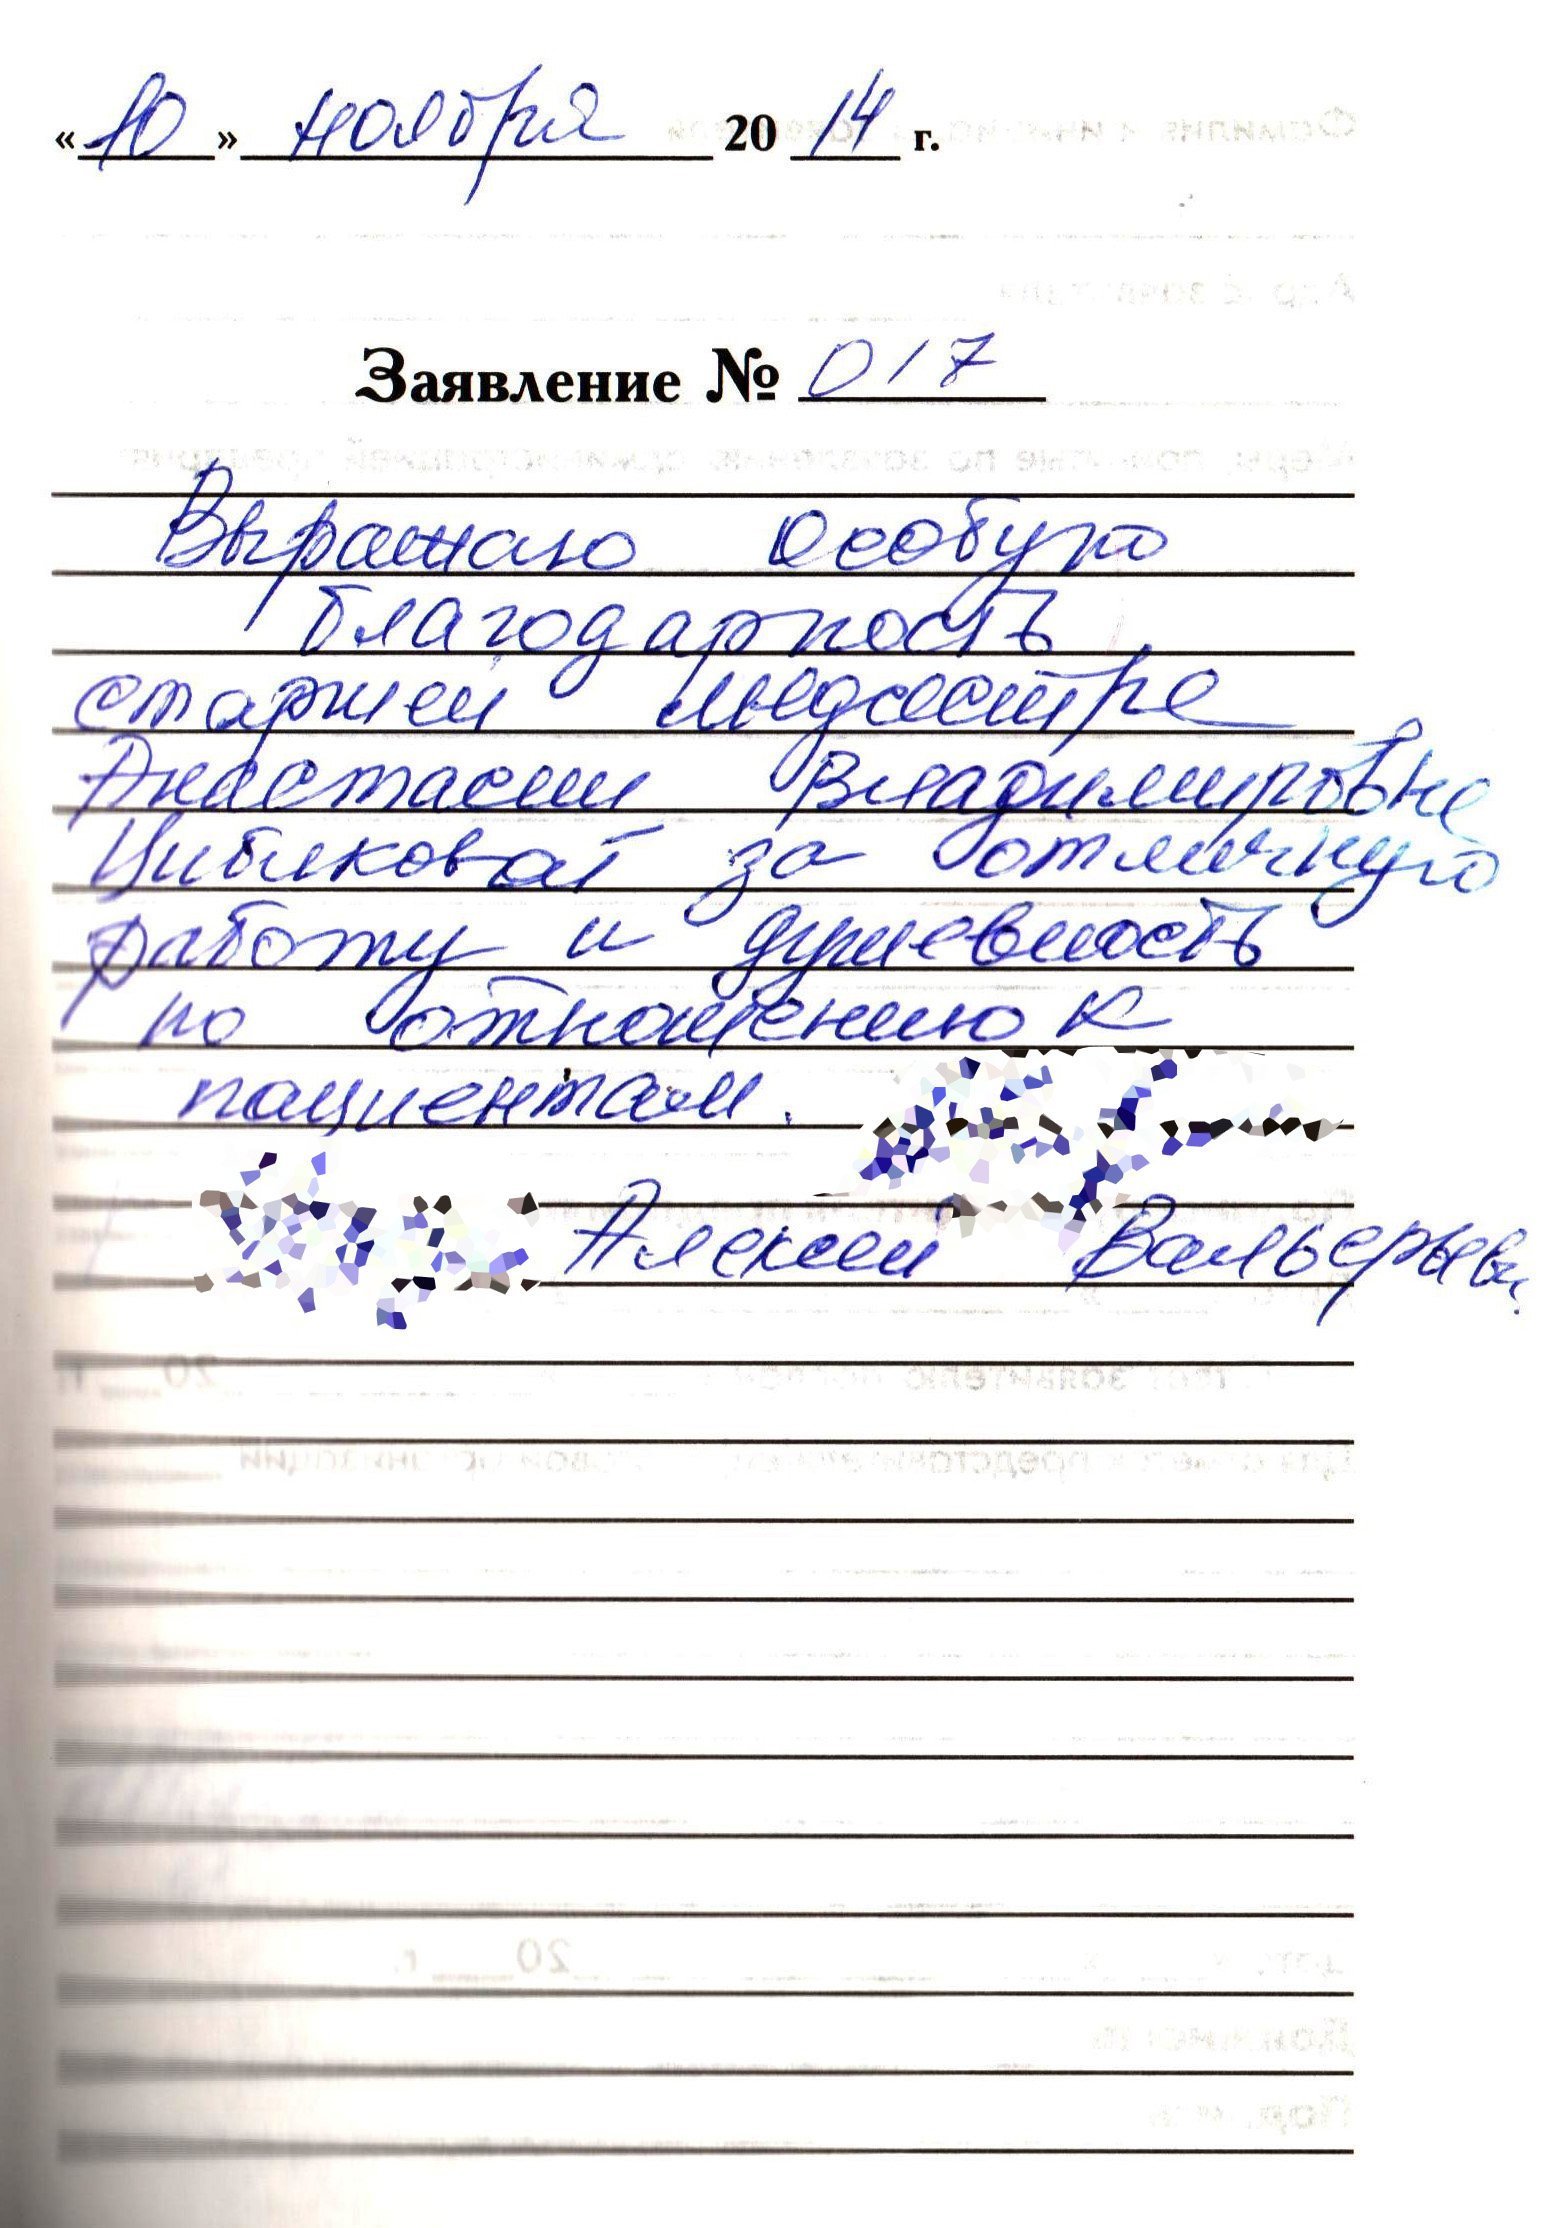 «10» ноября 2014 г.
Заявление № 017
Выражаю особую
благодарность
старшей медсестре
Анастасии Владимировне
за отличную
работу и душевность
по отношению к
пациентам.
Алексей Валерьев